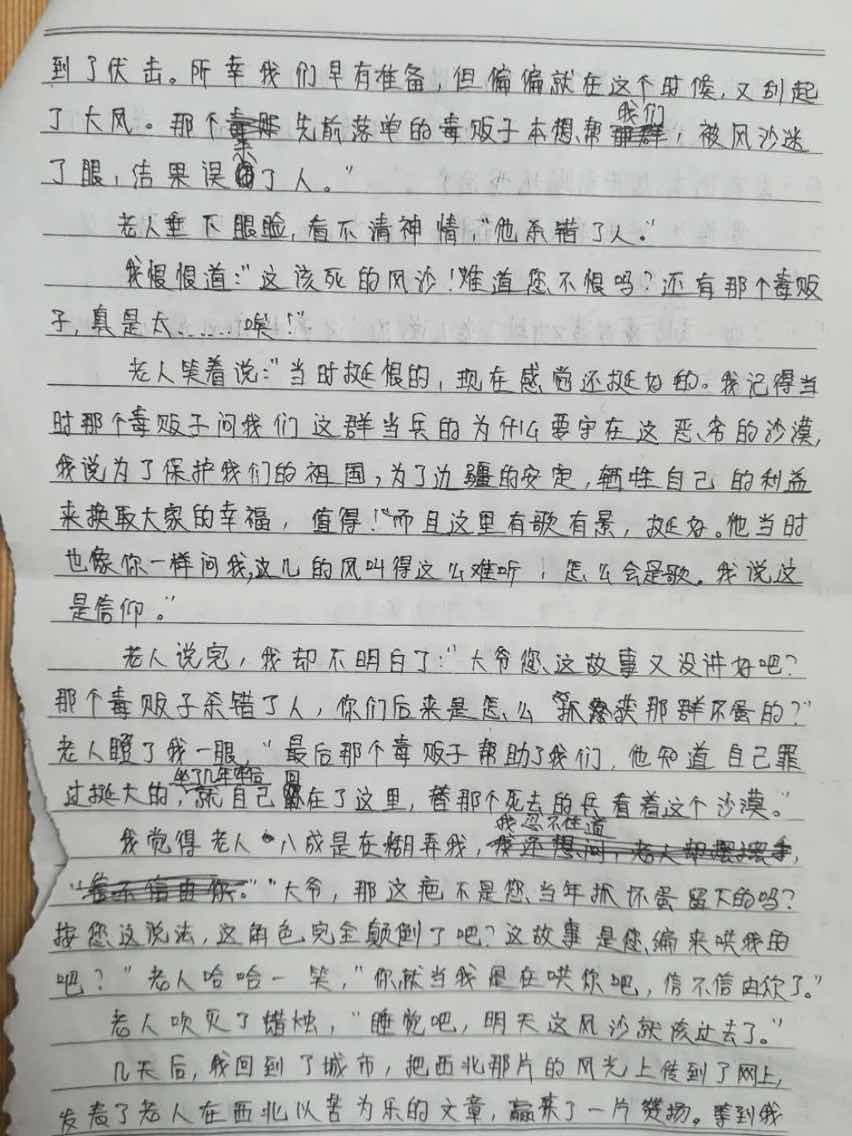 到了伏击。所幸我们早有准备，但偏偏就在这个时候，又刮起
了大风。那个先前落单的毒贩子本想帮我们，被风沙迷
了眼，结果误杀了人。”
老人垂下眼睑，看不清神情，“他杀错了人。”
我恨恨道：“这该死的风沙！难道您不恨吗？还有那个毒贩
子，真是太……唉！”
老人笑着说：“当时挺恨的，现在感觉还挺好的。我记得当
时那个毒贩子问我们这群当兵的为什么要守在这恶劣的沙漠，
我说为了保护我们的祖国，为了边疆的安定，牺牲自己的利益
来换取大家的幸福，值得！“而且这里有歌有景，挺好。他当时
也像你一样问我，这儿的风叫得这么难听，怎么会是歌。我说这
是信仰。”
老人说完，我却不明白了：“大爷您这故事又没讲好吧？
那个毒贩子杀错了人，你们后来是怎么抓获那群坏蛋的？”
老人瞪了我一眼，“最后那个毒贩子帮助了我们，他知道自己罪
过挺大的，坐了几年牢后就自己回在了这里，替那个死去的兵看着这个沙漠。”
我觉得老人八成是在糊弄我，我忍不住道
“大爷，那这疤不是您当年抓坏蛋留下的吗？
按您这说法，这角色完全颠倒了吧？这故事是您编来哄我的
吧？”老人哈哈一笑，“你就当我是在哄你吧，信不信由你了。”
老人吹灭了蜡烛，“睡觉吧，明天这风沙就该过去了。”
几天后，我回到了城市，把西北那片的风光上传到了网上，
发表了老人在西北以苦为乐的文章，赢来了一片赞扬。等到我